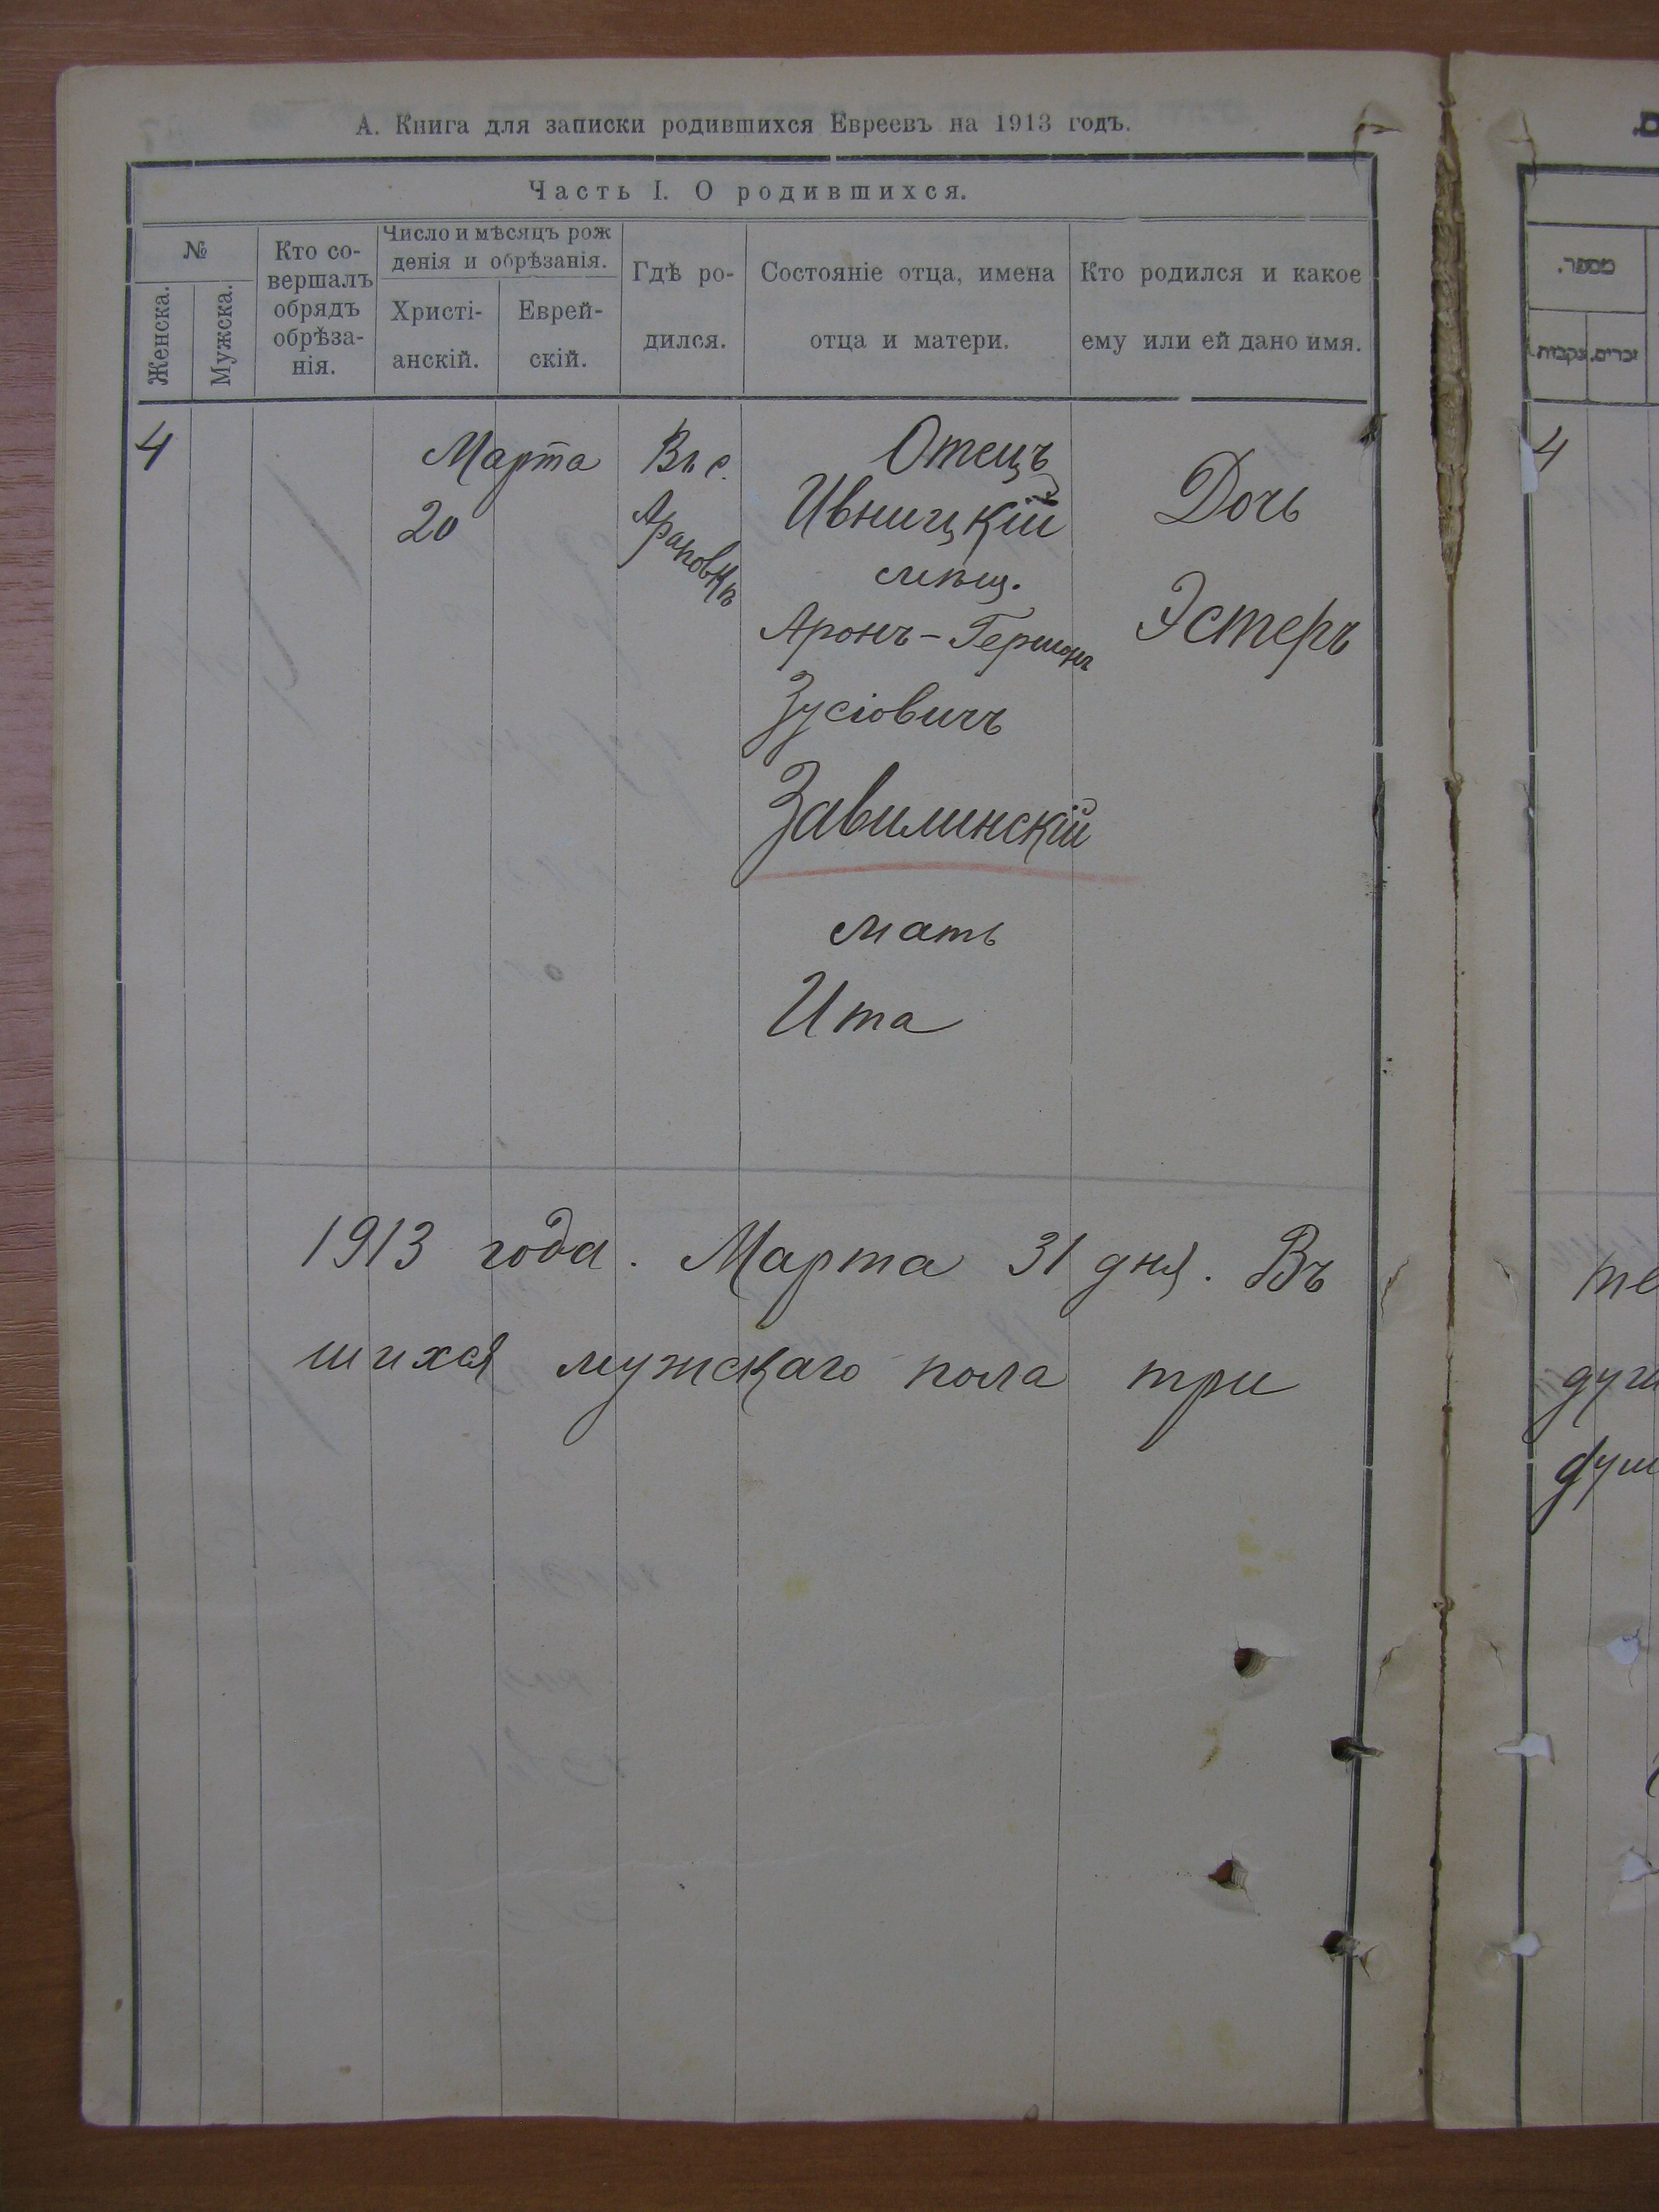 А. Книга для записки родившихся Евреевъ на 1913 годъ.
Часть I. О родившихся.
№
Женска.
Мужска.
Кто со-
вершалъ
обрядъ
обрѣза-
нія.
Число и мѣсяцъ рож
денія и обрѣзанія.
Христі-
анскій.
Еврей-
скій.
Гдѣ ро-
дился.
Состояніе отца, имена
отца и матери.
Кто родился и какое
ему или ей дано имя.
4
Марта
20
Въ с.
Отецъ
Ивницкій
мѣщ.
Аронъ-Гершонъ
Зусіовичъ
Завилинскій
мать
Ита
Дочь
Эстеръ
1913 года. Марта 31 дня. Въ
шихся мужскаго пола три
מספר.
נקבות
זכרים.
4